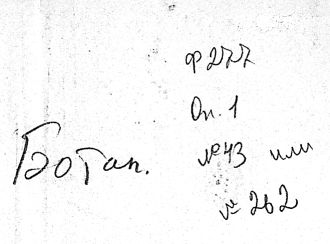 Ф 277
Оп. 1
Ботан.
№ 43 или
№ 262